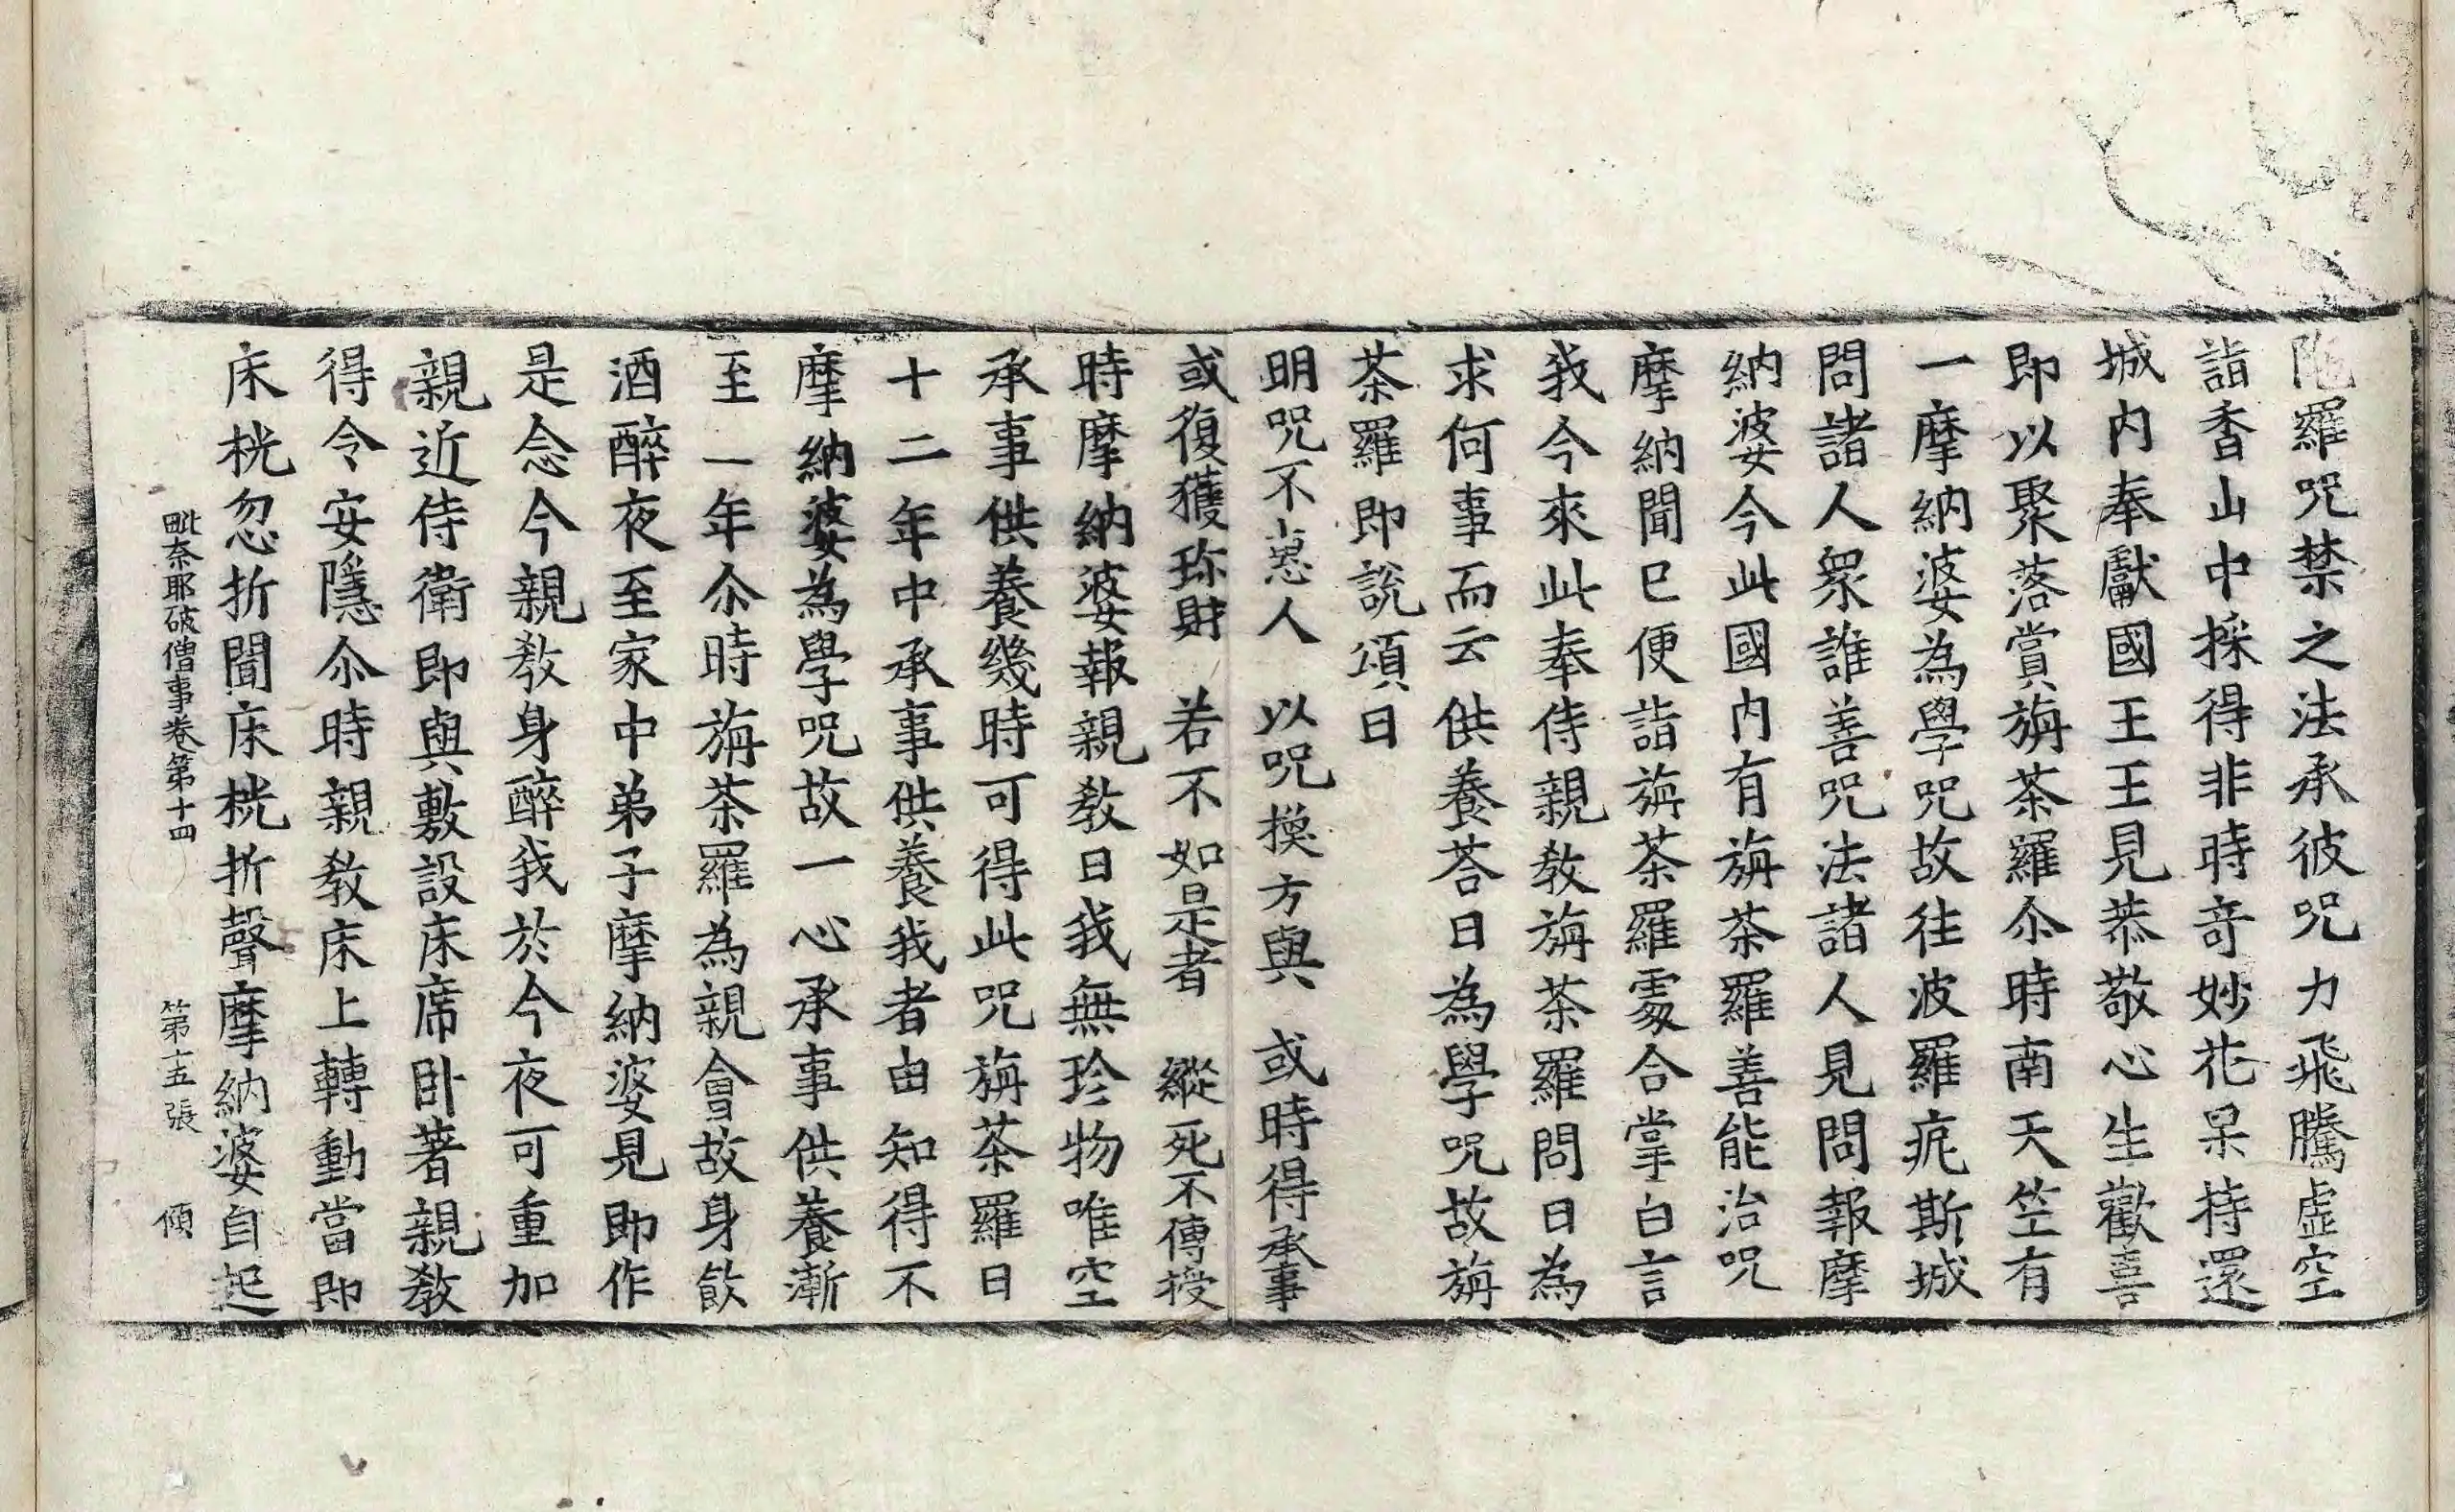 陁羅呪禁之法承彼呪力飛騰虛空
詣香山中採得非時奇妙花果持還
城內奉獻國王王見恭敬心生歡喜
即以聚落賞旃荼羅尒時南天竺有
一摩納婆為學呪故往波羅痆斯城
問諸人衆誰善呪法諸人見問報摩
納婆今此國內有旃荼羅善能治呪
摩納聞已便詣旃荼羅處合掌白言
我今來此奉侍親教旃荼羅問曰為
求何事而云供養荅曰為學呪故旃
荼羅即說頌曰
明呪不惠人　以呪換方與　或時得承事
或復獲珎財　若不如是者　縱死不傳授
時摩納婆報親教曰我無珍物唯空
承事供養幾時可得此呪旃荼羅曰
十二年中承事供養我者由知得不
摩納婆為學呪故一心承事供養漸
至一年尒時旃荼羅為親會故身飲
酒醉夜至家中弟子摩納婆見即作
是念今親教身醉我於今夜可重加
親近侍衛即與敷設床席卧著親教
得令安隱尒時親教床上轉動當即
床桄忽折聞床桄折聲摩納婆自起
毗奈耶破僧事卷第十四　第十五張　傾